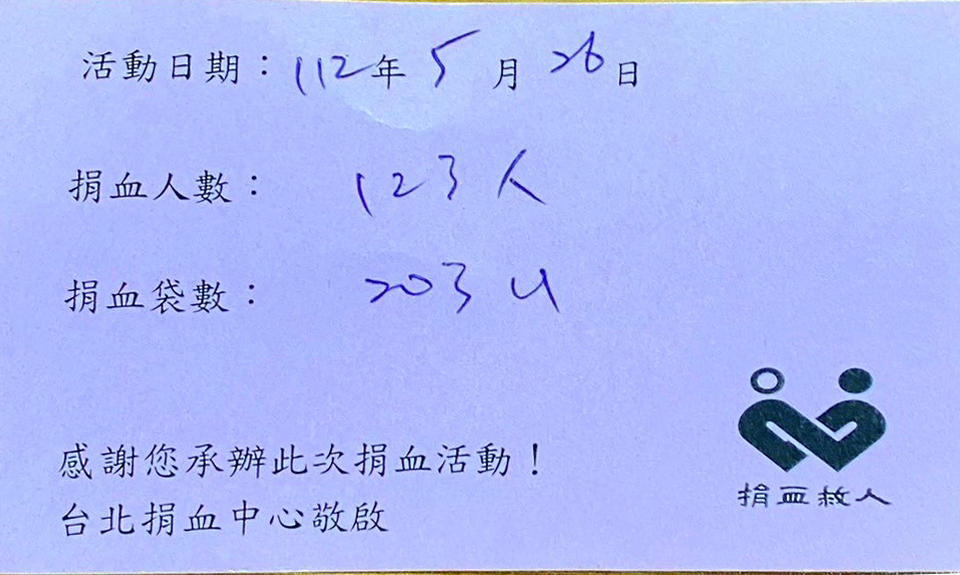 活動日期：112年5月26日
捐血人數：123人
捐血袋數：203U
感謝您承辦此次捐血活動！
台北捐血中心敬啟
捐血救人